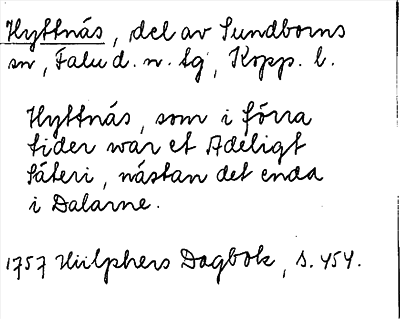 Hyttnäs, del av Sundborns
sn, Falu d. n. tg, Kopp. l.
Hyttnäs, som i förra
tider war et Adeligt
Säteri, nästan det enda
i Dalarne.
1757 Hülphers Dagbok, s. 454.